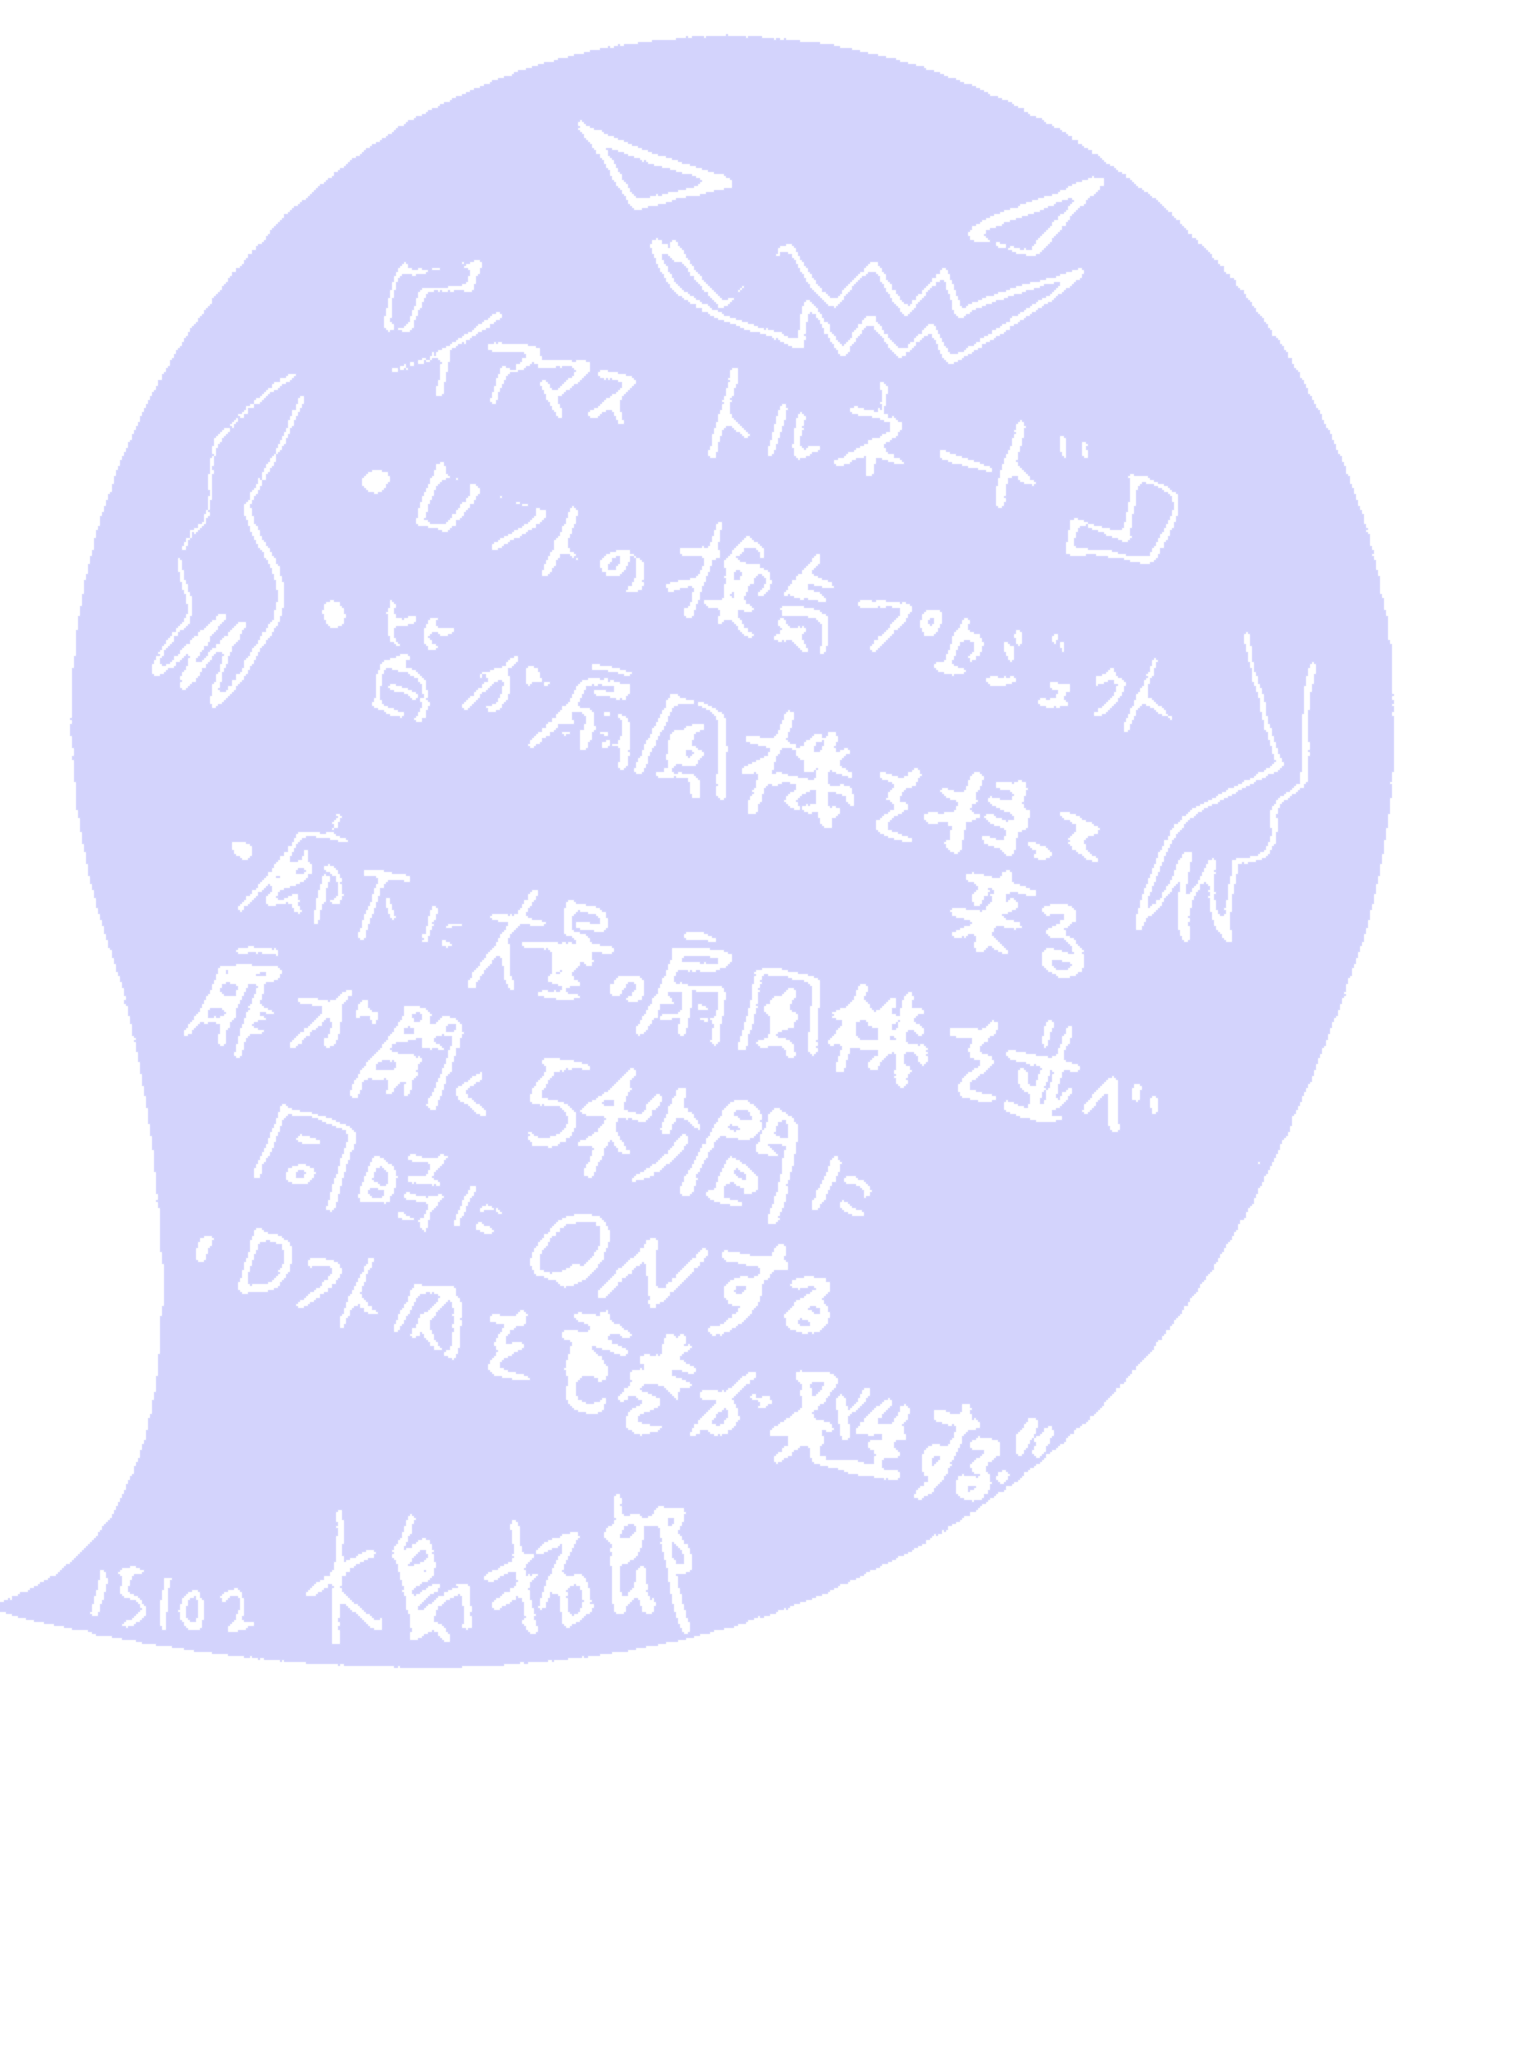 『イアマス トルネード』
・ロフトの換気プロジェクト
・皆が扇風機を持って
来る
・廊下に大量の扇風機を並べ
扉が開く5秒間に
同時にONする
・ロフト内を竜巻が発生する!!
15102 大島拓郎